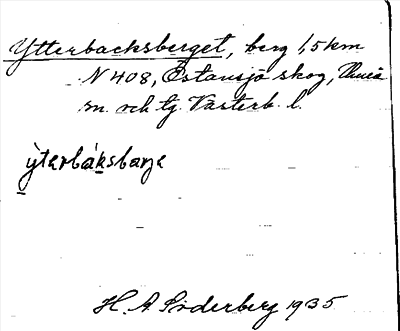 Ytterbacksberget, berg 1,5 km
N 408, Östansjö skog, Umeå
m. och tg. Västerb. l.
ỳtərbáksbarjə
H. A. Söderberg 1935